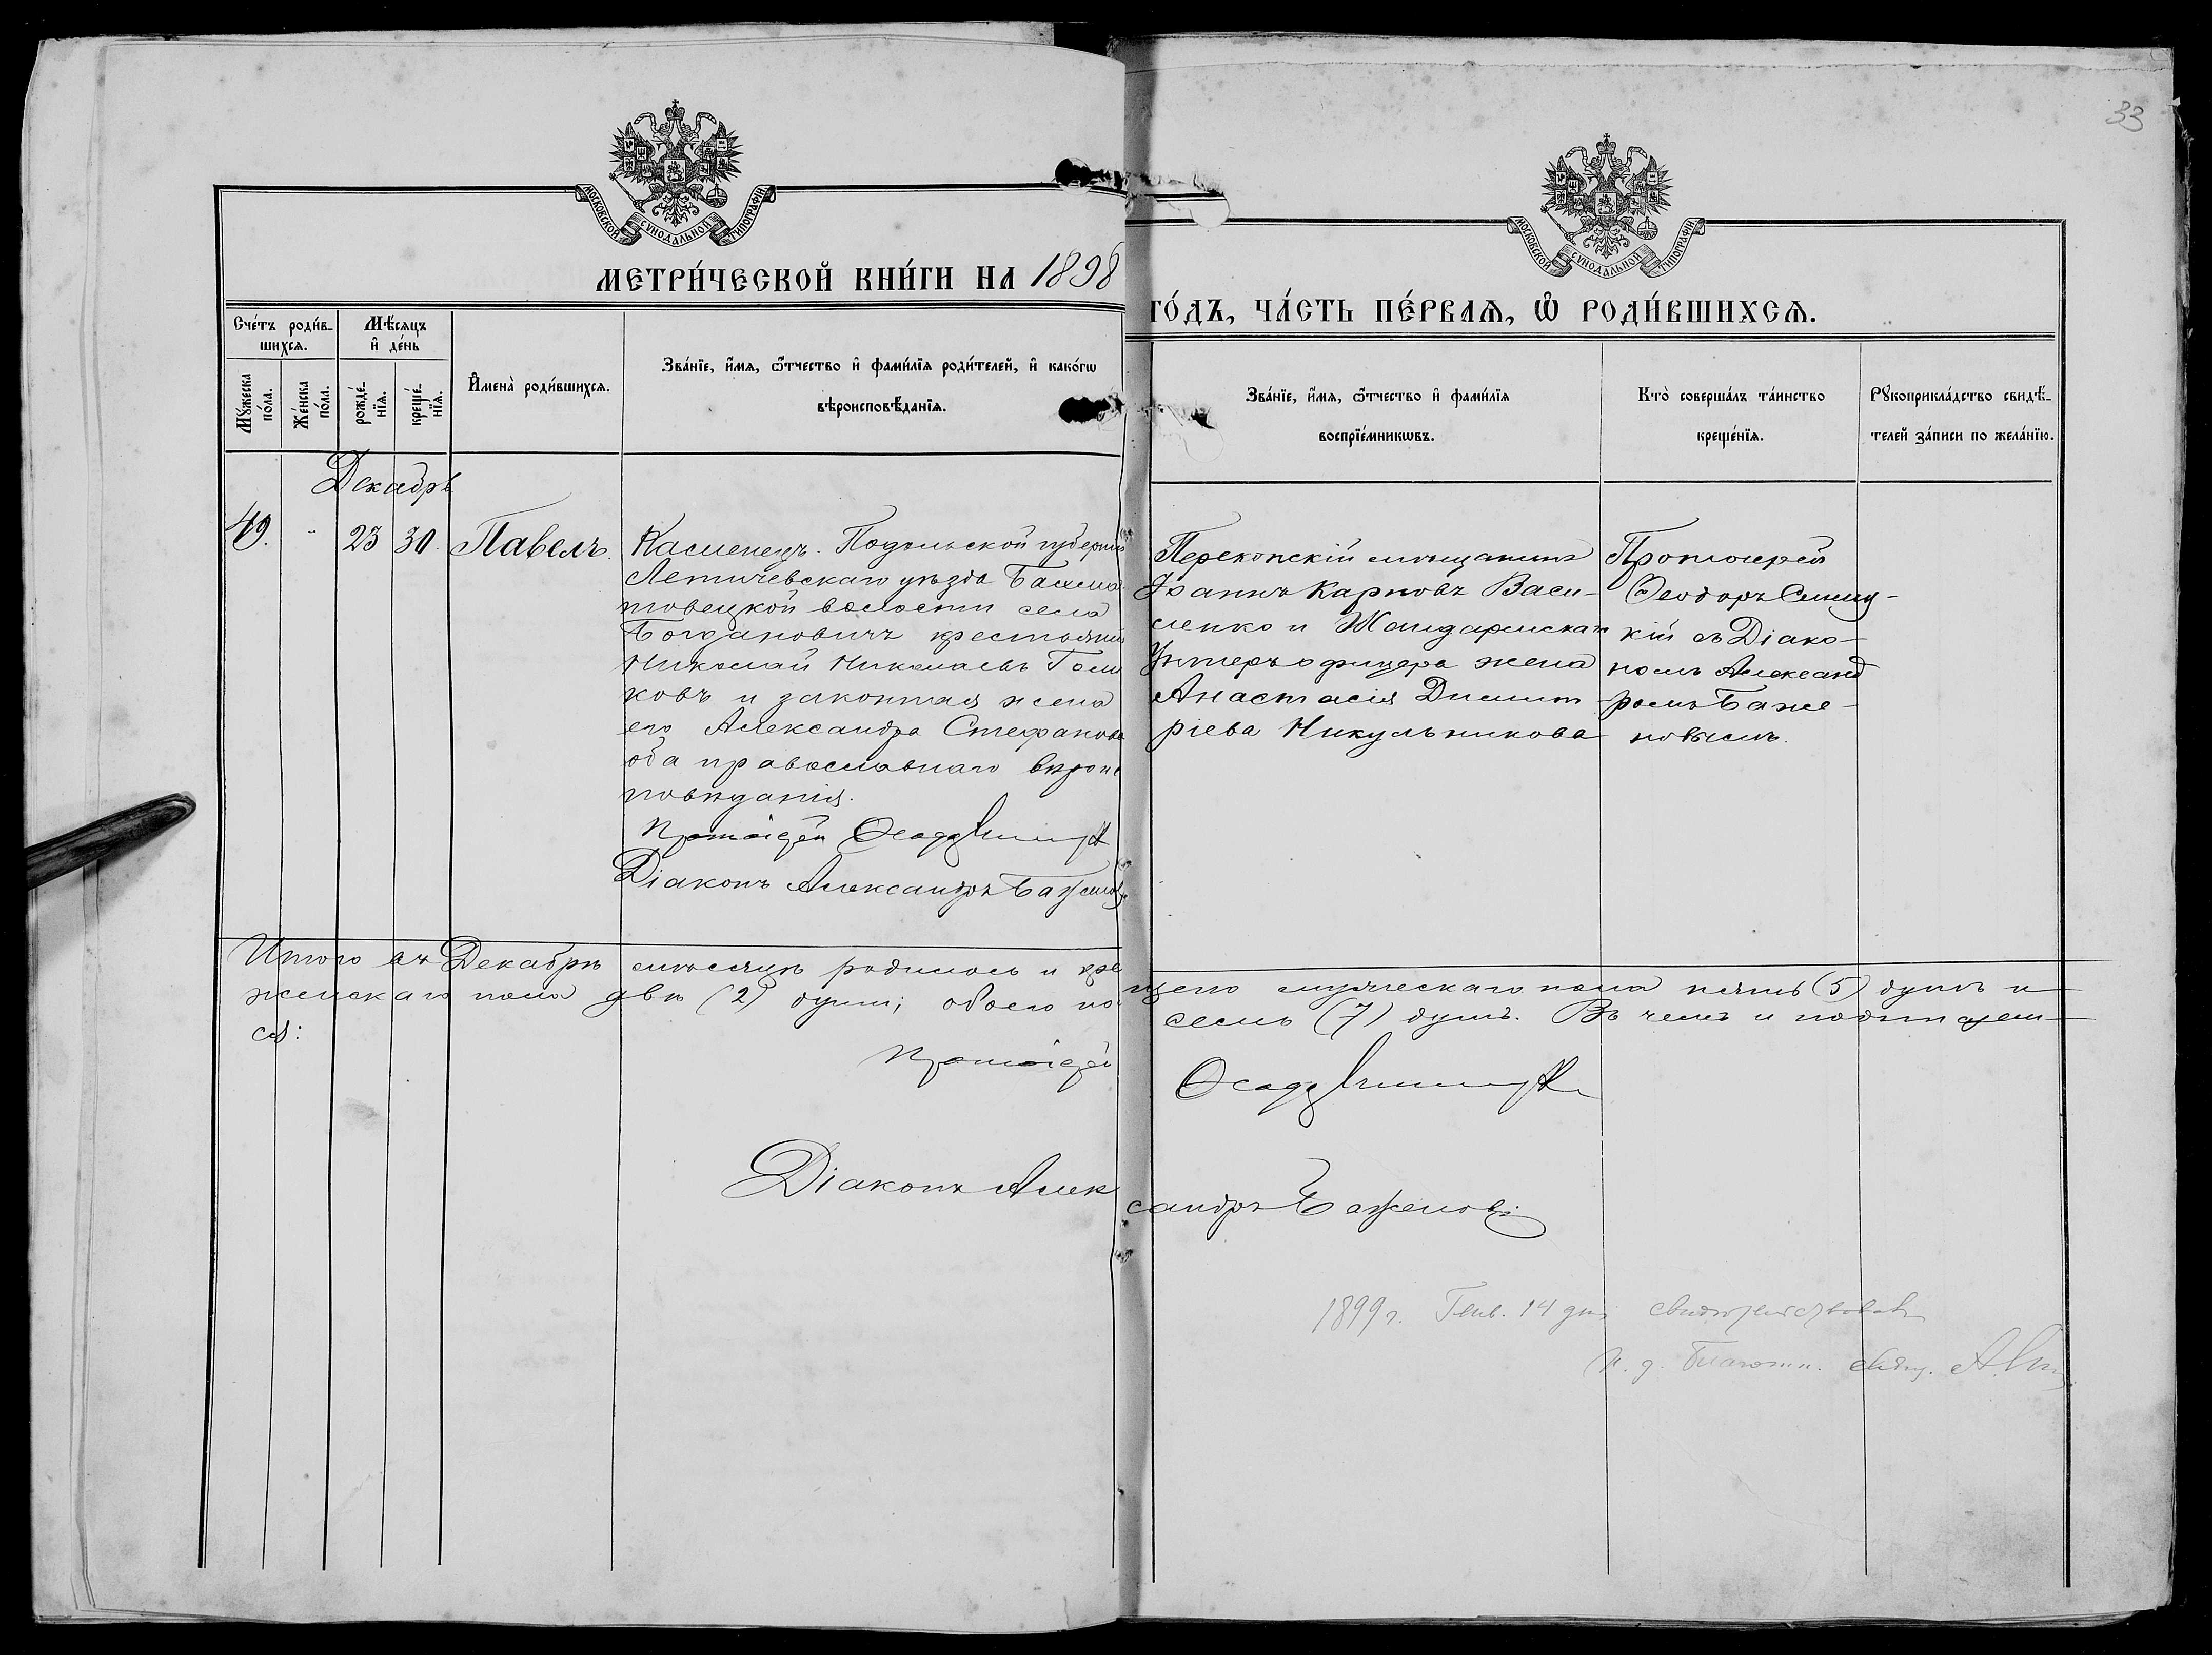 33
МОСКОВСКОЙ СѴНОДАЛЬНОЙ ТИПОГРАФІИ
МОСКОВСКОЙ СѴНОДАЛЬНОЙ ТИПОГРАФІИ
МЕТРИ́ЧЕСКОЙ КНИ́ГИ НА 1898
ГО́ДЪ, ЧА́СТЬ ПЕ́РВАѦ, Ѽ РОДИ́ВШИХСѦ.
Сче́тъ роди́в-
шихсѧ.
Мѣ́сѧцъ
и҆ де́нь
Мꙋ́жеска
по́ла.
Же́нска
по́ла.
рожде́-
нїѧ.
креще́-
нїѧ.
И҆мена̀ роди́вшихсѧ.
Зва́нїе, и҆́мѧ, ѻ҆́тчество и҆ фами́лїѧ роди́телей, и҆ како́гѡ
вѣроисповѣ́данїѧ.
Зва́нїе, и҆́мѧ, ѻ҆́тчество и҆ фами́лїѧ
воспрїе́мникѡвъ.
Кто̀ соверша́лъ та́инство
креще́нїѧ.
Рꙋкоприкла́дство свидѣ́-
телей за́писи по жела́нїю.
Декабрь
49. " 23 30. Павелъ
Каменецъ. Подольской губерніи
Летичевскаго уѣзда
товецкой волости села
Богдановичъ крестьянинъ
Николай Николаевъ Голи
ковъ и законная жена
его Александра Стефанова
оба православнаго вѣроис
повѣданія.
Протоіерей
Діаконъ Александръ Баженовъ
Перекопскій мѣщанинъ
Іоаннъ Карповъ Васи-
ленко и Жандармскаго
Унтеръ офицера жена
Анастасія Димит
ріева Никульникова
Протоіерей
Ѳеодоръ
кій съ Діако-
номъ Александ
ромъ Баже-
новымъ.
Итого въ Декабрѣ мѣсяцѣ родилось и кре
щено мужескаго пола пять (5) душъ и
женскаго пола двѣ (2) души; обоего по
семь (7) душъ. Въ чемъ и подписуем-
ся:
Протоіерей
Діаконъ Алек
сандръ Баженовъ
1899 г. Генв. 14 дня свидѣтельствовалъ
и. д. Благоч.